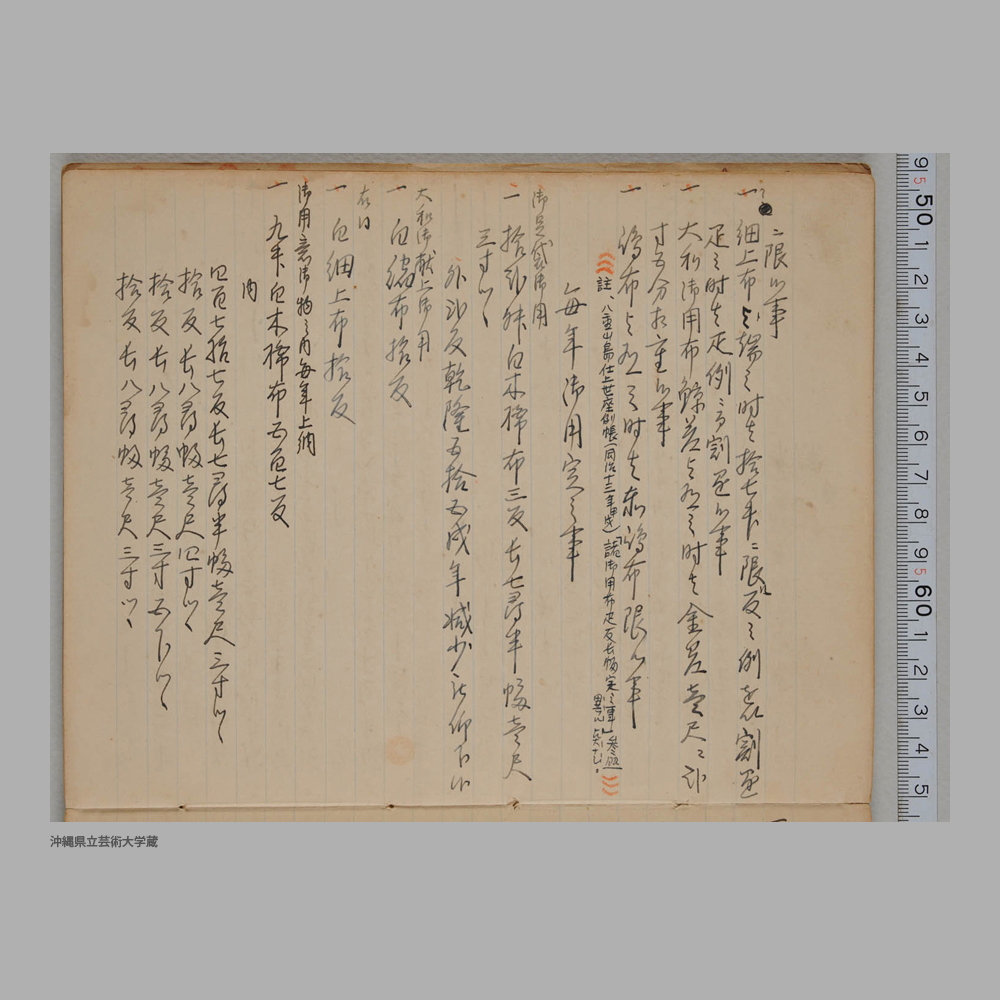 ニ限候事
一 細上布ゟ端之時者拾七舛ニ限 反之例を以割重
疋之時者疋例ニ而割重候事
一 大和御用布鯨差与有之時者金差壱尺ニ弐
寸五分相重候事
一 縞布与有之時者赤縞布限候事
註、八重山島仕上世座例帳(同治十三年甲戌)「諸御用布疋反長幅定之事」参照
毎年御用定之事
御足袋御用
一 拾弐舛白木綿布三反長七尋半幅壱尺
三寸ツヽ
外弐反乾隆五拾五戌年減少被仰下候
大和御献上御用
一 白縮布拾反
右同
一 白細上布拾反
御用意御物之内毎年上納
一 九舛白木綿布五百七反
内
四百七拾七反長七尋半幅壱尺三寸ツヽ
拾反長八尋幅壱尺四寸ツヽ
拾反長八尋幅壱尺三寸五分ツヽ
拾反長八尋幅壱尺三寸ツヽ
5 50 1 2 3 4 5 6 7 8 9 5 60 1 2 3 4 5
沖縄県立芸術大学蔵